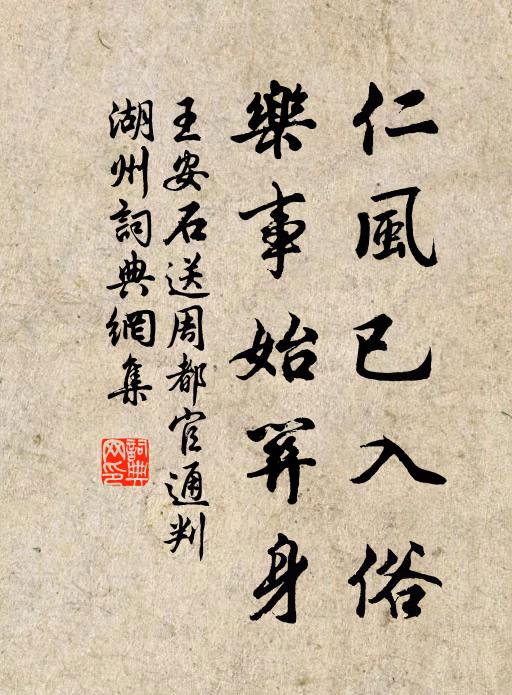 仁風已入俗
樂事始關身
王安石送周都官通判
湖州詞典網集
詞典
网印